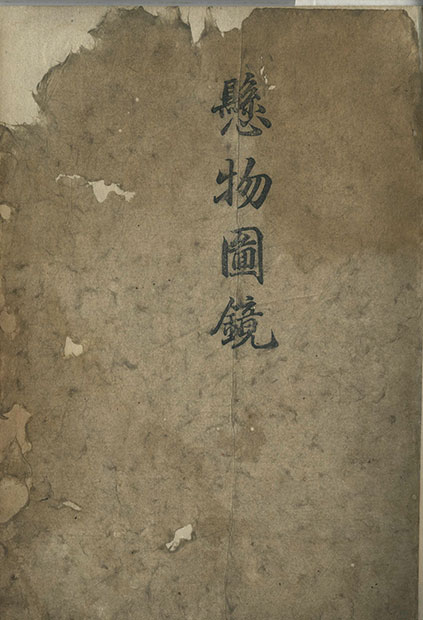 懸物圖鏡